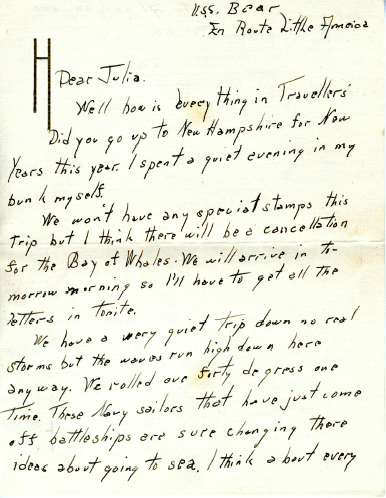 U.S.S. Bear
En Route Little America
H
Dear Julia.
Well how is everything in Travellers'
Did you go up to New Hampshire for New
Years this year. I spent a quiet evening in my
bunk myself.
We won't have any special stamps this
Trip but I think there will be a cancellation
for the Bay of Whales. We will arrive in to-
morrow morning so I'll have to get all the
letters in tonite.
We have a very quiet trip down no real
storms but the waves run high down here
anyway. We rolled over forty degress one
Time. These Navy sailors that have just come
off battleships are sure changing there
ideas about going to sea. I think a bout every